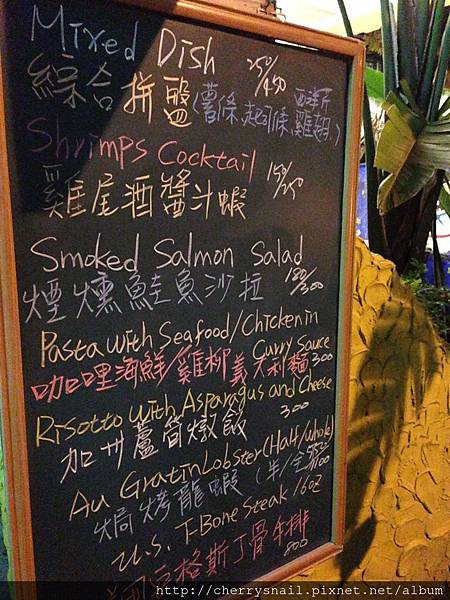 Mixed Dish
250/450
綜合拼盤(薯條,起司條,雞翅,)
Shrimps Cocktail
150/250
雞尾酒醬汁蝦
Smoked Salmon Salad
180/300
煙燻鮭魚沙拉
Pasta with Seafood/Chicken in
Curry Sauce
咖哩海鮮/雞柳義大利麵 300
Risotto with Asparagus and Cheese
加州蘆筍燉飯 300
Au Gratin Lobster (Half/whole)
焗烤龍蝦(半/全) /1100
U.S. T-Bone Steak 16oz
格斯丁骨牛排 800
http://cherrysnail.pixnet.net/album